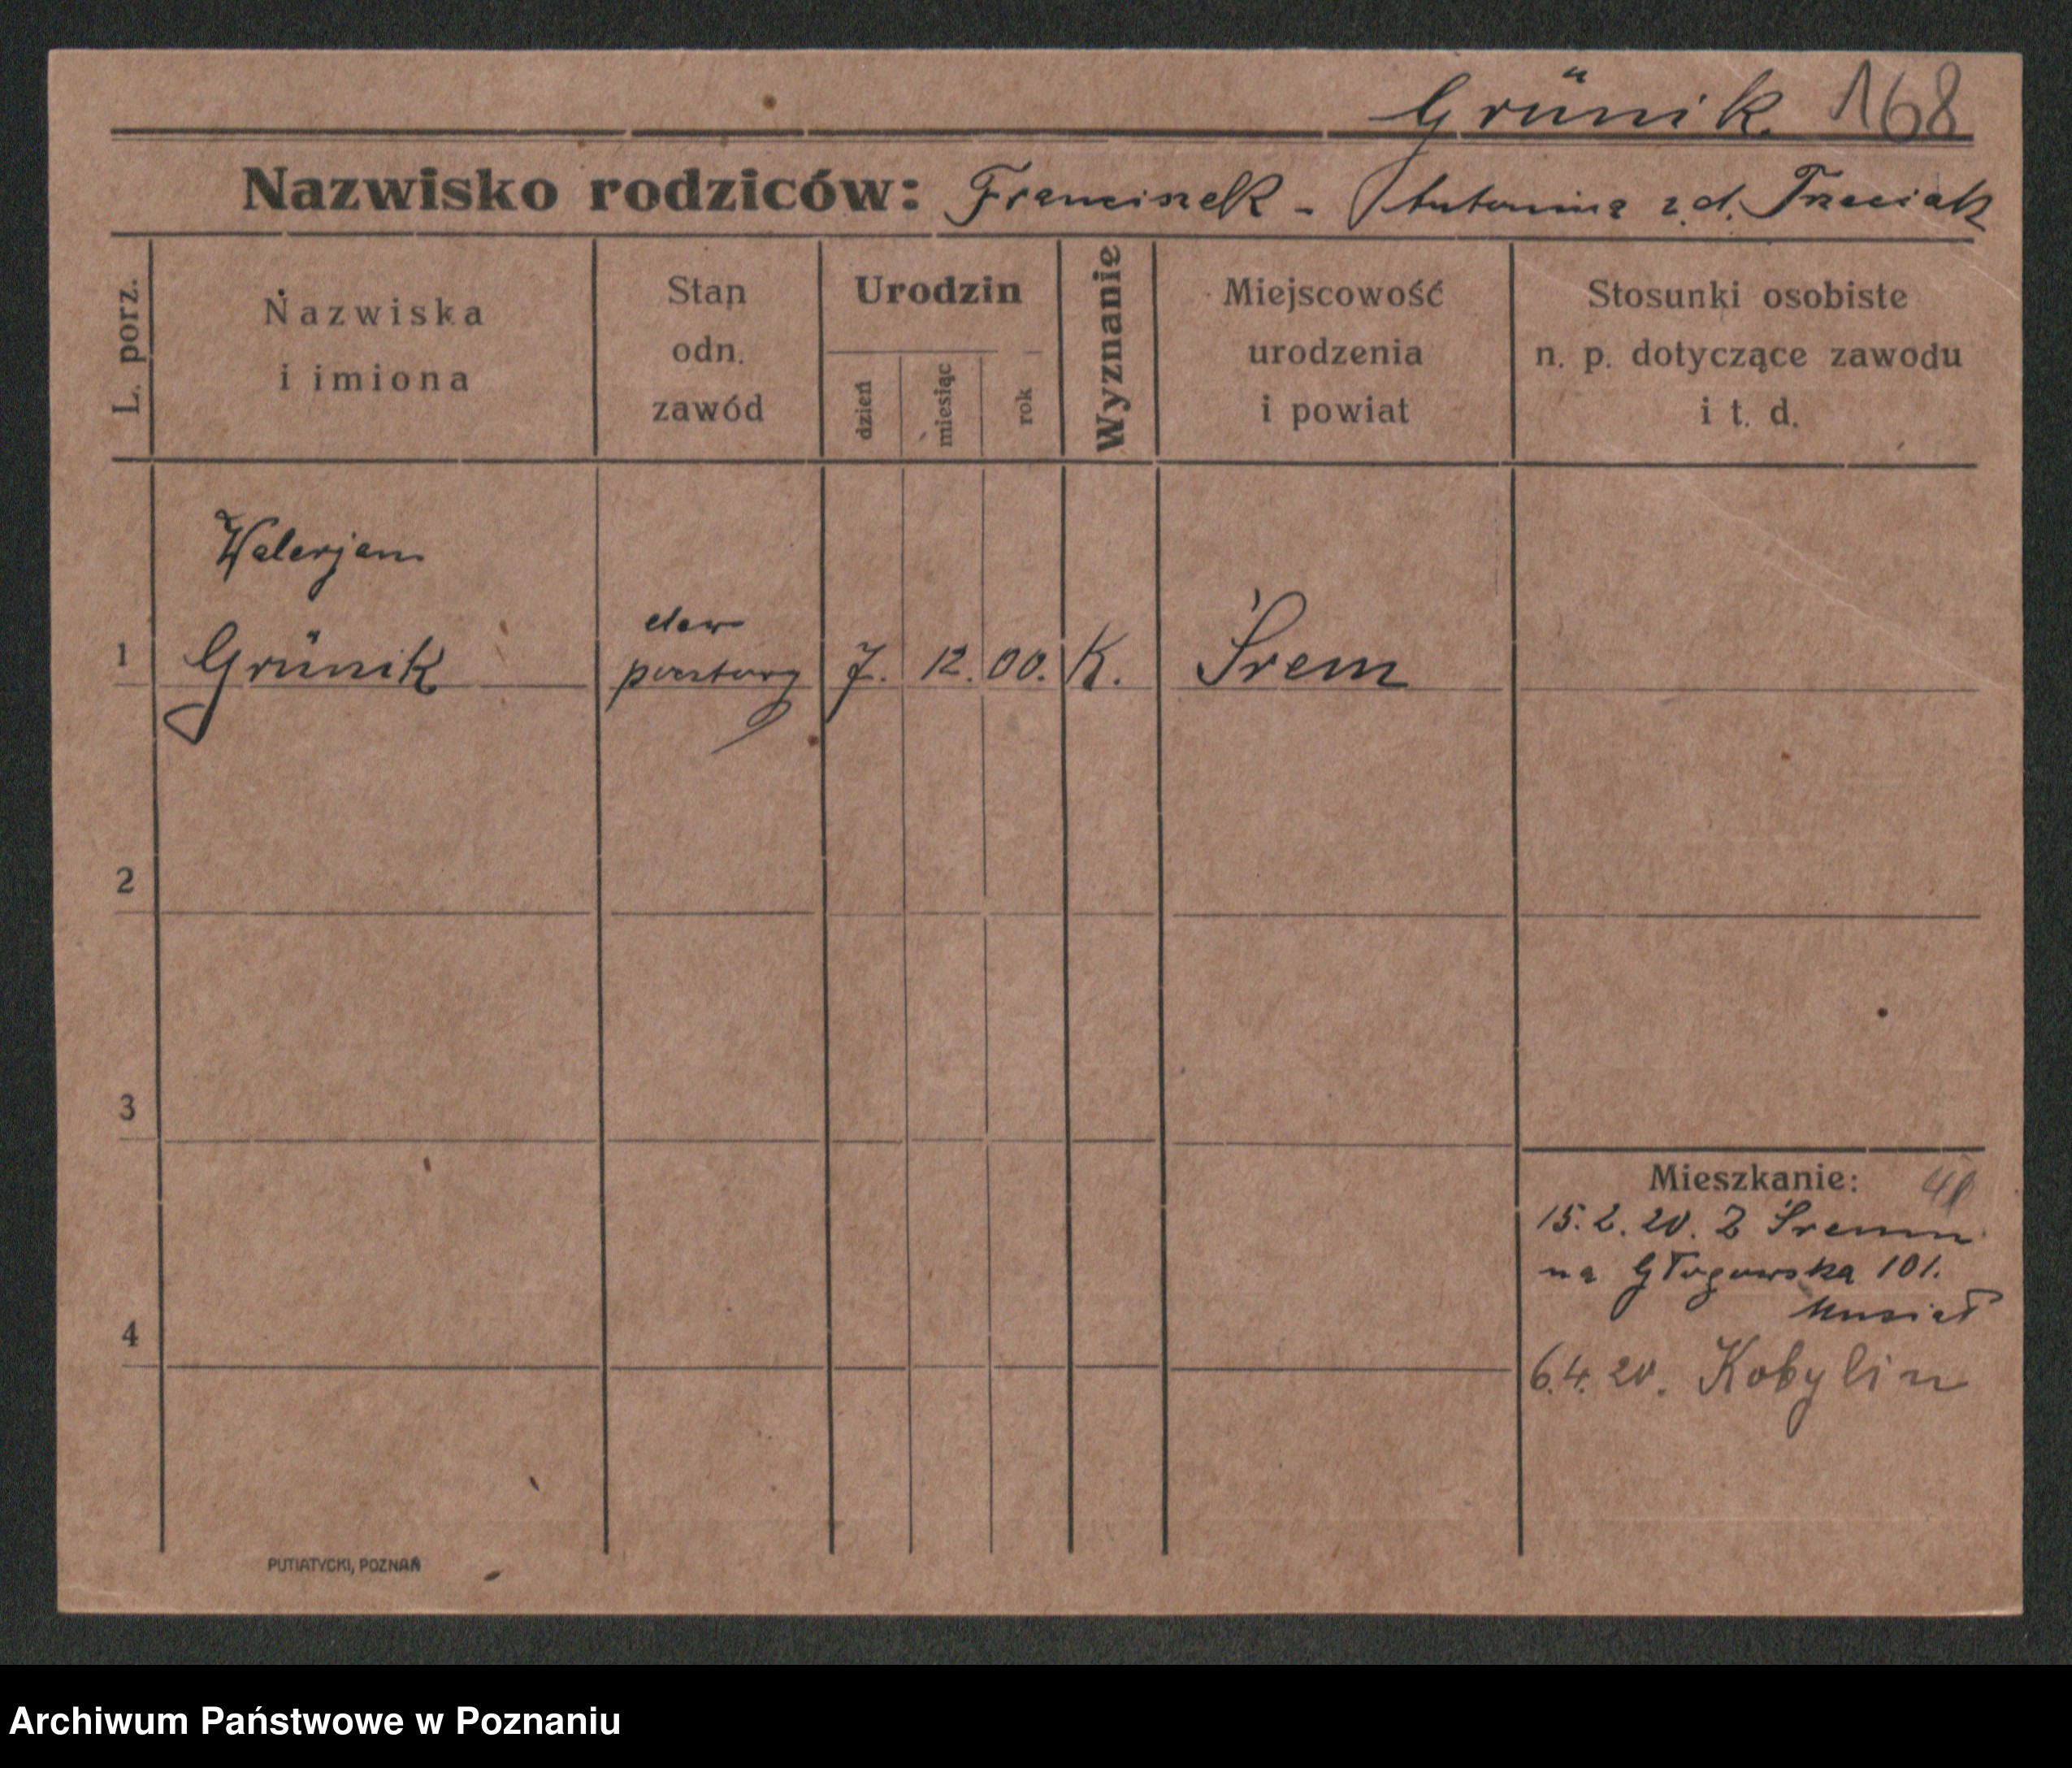 Grünik. 168
Nazwisko rodziców: Franciszek - Antonina z.d. Trzeciak
L. porz.
Nazwiska
i imiona
Stan
odn.
zawód
Urodzin
dzień
miesiąc
rok
Wyznanie
Miejscowość
urodzenia
i powiat
Stosunki osobiste
n. p. dotyczące zawodu
i t. d.
Walerjan
1 Grünik
elew
pocztowy
7. 12. 00. K. Śrem
2
3
Mieszkanie:
15.2.20. Z Śremu
na Głogowska 101.
Musiał
4
6.4.20. Kobylin
PUTIATYCKI, POZNAŃ
Archiwum Państwowe w Poznaniu